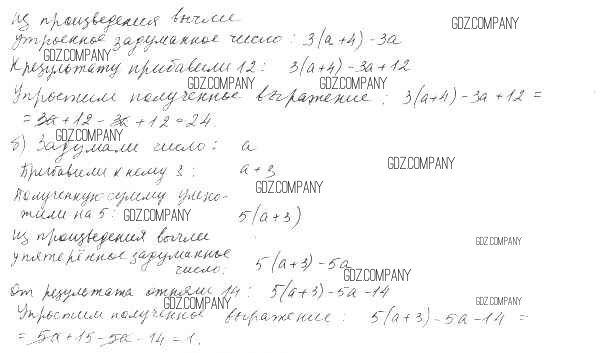 Из произведения вычли GDZ.COMPANY
утроенное задуманное число: 3(a+4)-3a
GDZ.COMPANY
К результату прибавили 12: 3(a+4)-3a+12
GDZ.COMPANY GDZ.COMPANY
Упростим полученное выражение: 3(a+4)-3a+12=
=3a+12-3a+12=24.
GDZ.COMPANY
б) Задумали число: a
Прибавили к нему 3: a+3 GDZ.COMPANY
Полученную сумму умно- GDZ.COMPANY
жили на 5: GDZ.COMPANY 5(a+3)
Из произведения вычли GDZ.COMPANY
упятерённое задуманное
число: 5(a+3)-5a
GDZ.COMPANY
От результата отняли 14: 5(a+3)-5a-14
GDZ.COMPANY GDZ.COMPANY
Упростим полученное выражение: 5(a+3)-5a-14=
=5a+15-5a-14=1.